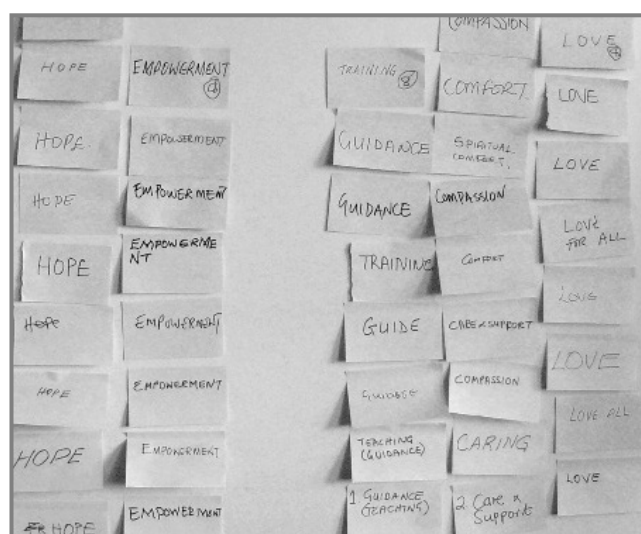 HOPE
HOPE
HOPE
HOPE
Hope
HOPE
HOPE
HOPE
EMPOWERMENT
EMPOWERMENT
EMPOWERMENT
EMPOWERME
NT
EMPOWERMENT
EMPOWERMENT
EMPOWERMENT
EMPOWERMENT
TRAINING 8
GUIDANCE
GUIDANCE
TRAINING
GUIDE
TEACHING
(GUIDANCE)
1 GUIDANCE
(TEACHING)
COMPASSION
COMFORT
SPIRITUAL
COMFORT.
COMPASSION
COMFORT
CARE & SUPPORT
COMPASSION
CARING
2 Care &
Support
LOVE
LOVE
LOVE
LOVE
FOR ALL
LOVE
LOVE
LOVE ALL
LOVE